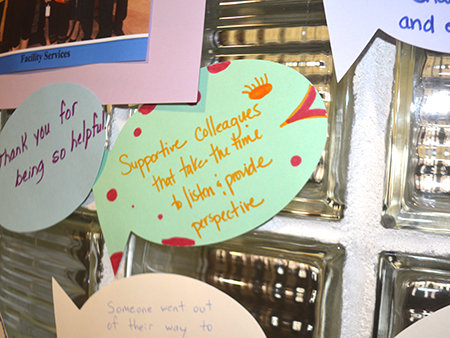 Facility Services
and e
Thank you for
being so helpful
Supportive Colleagues
that take the time
to listen & provide
perspective
Someone went out
of their way to